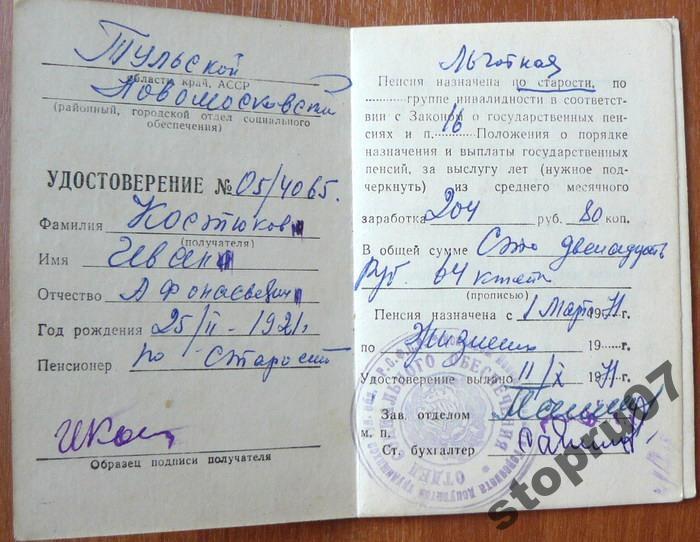 Тульской
области край, АССР
Новомосковский
(районный, городской отдел социального
обеспечения)
УДОСТОВЕРЕНИЕ № 05/4065.
Фамилия Костюков
(получателя)
Имя Иван
Отчество Афонасьевич
Год рождения 25/II – 1921г.
Пенсионер по старости
Образец подписи получателя
Льготная
Пенсия назначена по старости, по
группе инвалидности в соответст-
вии с Законом о государственных пен-
сиях и п. 16 Положения о порядке
назначения и выплаты государственных
пенсий, за выслугу лет (нужное под-
черкнуть) из среднего месячного
заработка 204 руб. 80 коп.
В общей сумме Сто двенадцать
руб. 64 коп
(прописью)
Пенсия назначена с 1 Марта 1971 г.
по Жизненно 19 г.
Удостоверение выдано 11/X 1971 г.
Зав. отделом
М. П.
Ст. бухгалтер
ОТДЕЛ СОЦИАЛЬНОГО ОБЕСПЕЧЕНИЯ
stopru07